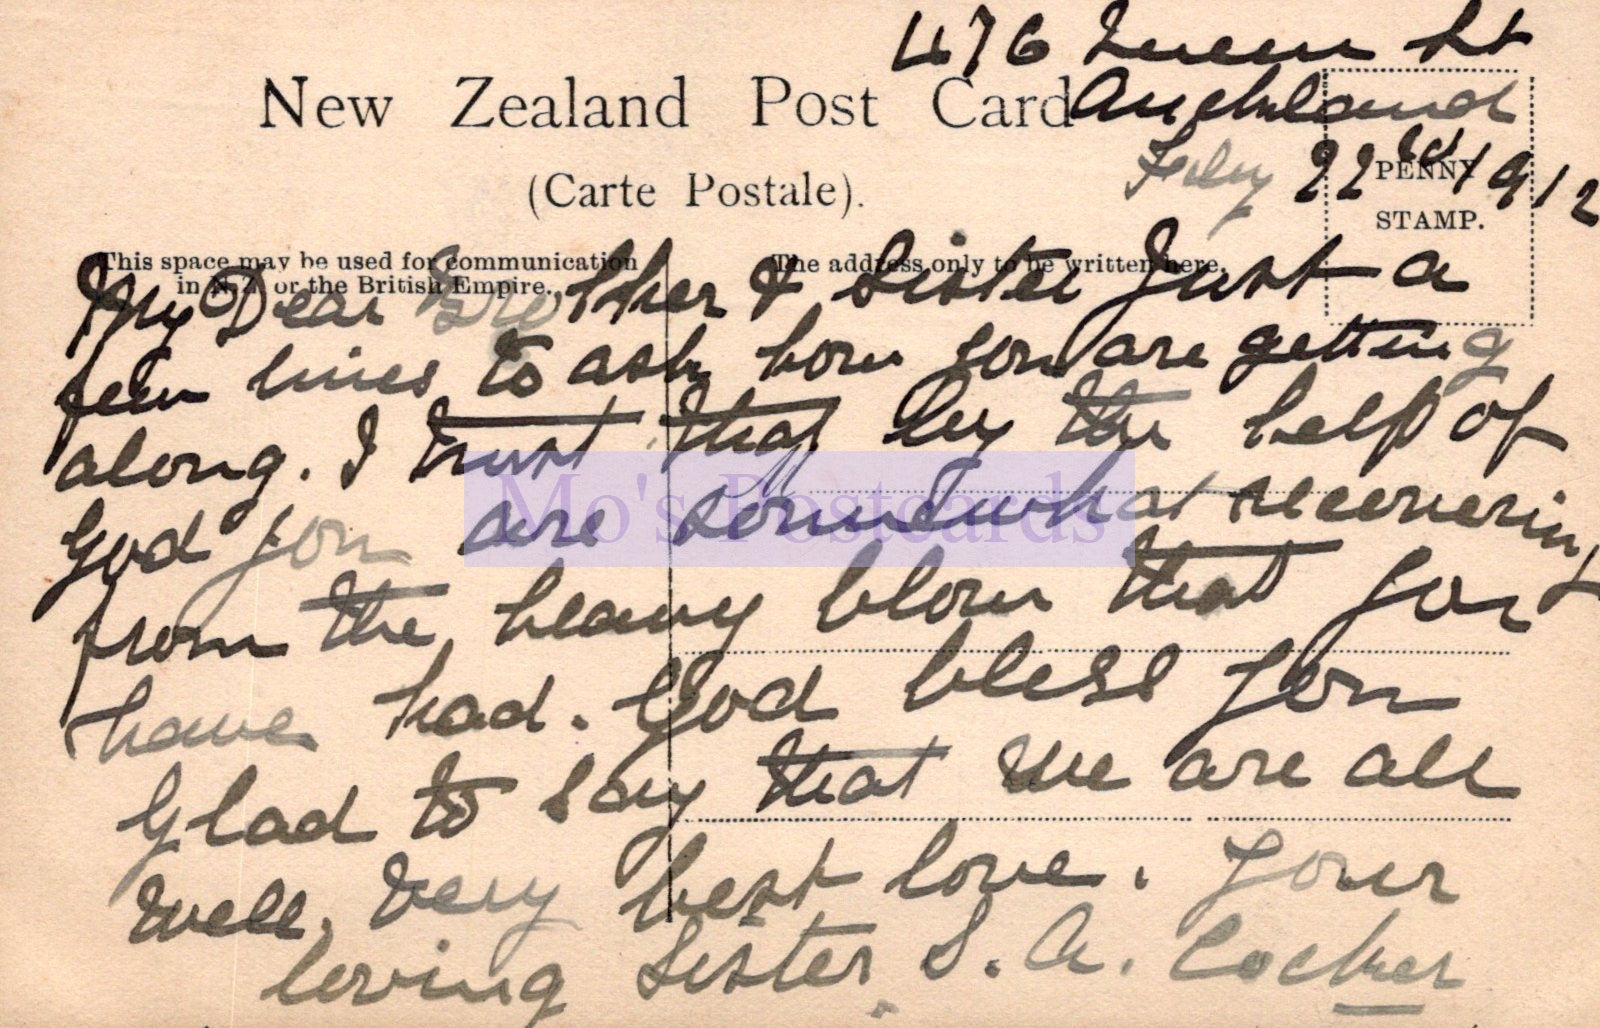 476 Queen St
New Zealand Post Card
Auckland
(Carte Postale).
Feby 22nd 1912
PENNY
STAMP.
This space may be used for communication
in N.Z. or the British Empire.
The address only to be written here.
My Dear Brother & Sister Just a
few lines to ask how you are getting
along. I trust that by the help of
God you are somewhat recovering
from the heavy blow that you
have had. God bless you
Glad to say that we are all
well. Very best love. Your
loving Sister S. A. Cocker
Mo's Postcards